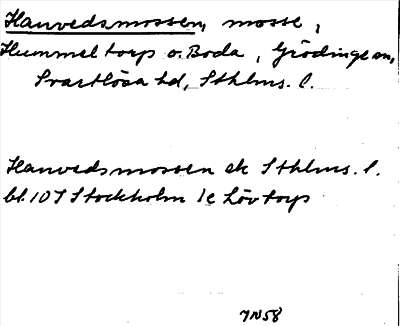 Hanvedsmossen, mosse,
Hummeltorp o. Boda, Grödinge sn,
Svartlösa hd, Sthlms. l.
Hanvedsmossen ek Sthlms. l.
bl. 107 Stockholm 1c Lövtorp
JN58